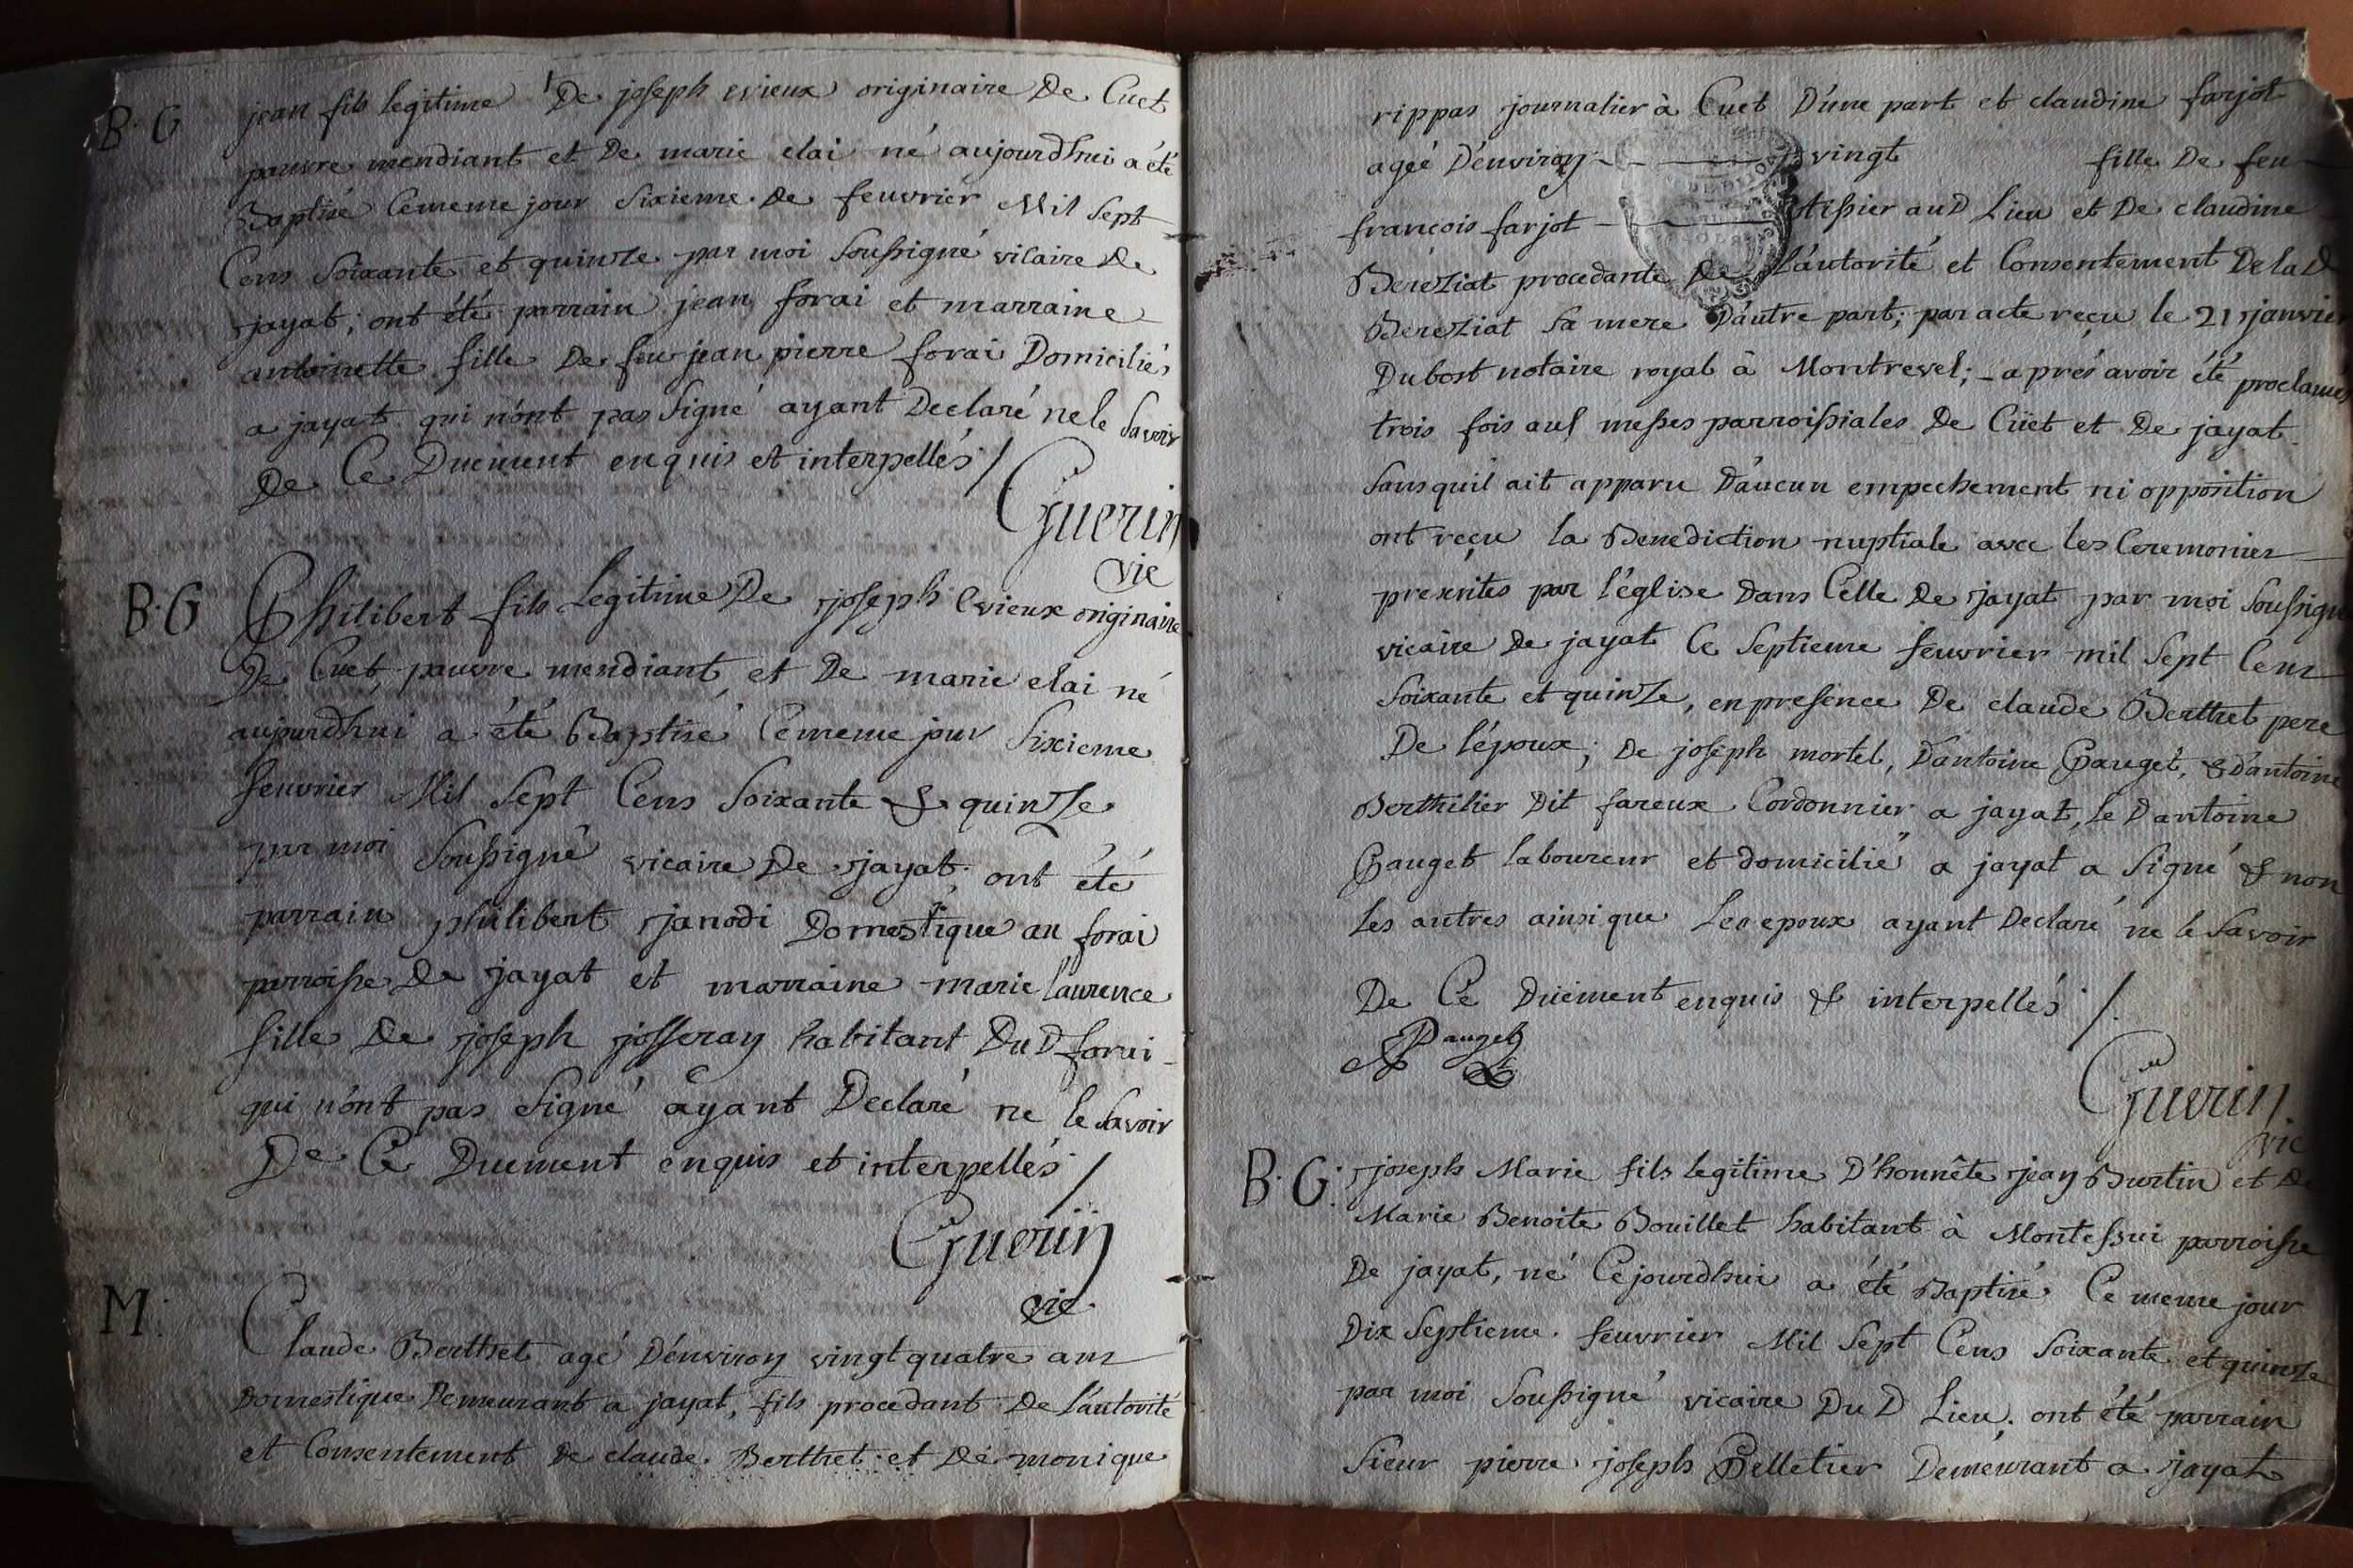 B. G
jean fils legitime De joseph evieux originaire De Cuet
pauvre mendiant et De marie elai né aujourdhui a été
Baptisé Cememe jour Sixieme De feuvrier Mil Sept
Cens Soixante et quinze par moi Soussigné vicaire De
jayat; ont été parrain jean forai et marraine
antoinette fille De feu jean pierre forai Domiciliés
a jayat qui n'ont pas Signé ayant Declaré ne le Savoir
De Ce Duement enquis et interpellés /
Guerin
vic
B. G
Philibert fils Legitime De joseph Evieux originaire
De Cuet, pauvre mendiant, et De marie elai né
aujourdhui a été Baptisé Cememe jour Sixieme
feuvrier Mil Sept Cens Soixante & quinze
par moi Soussigné vicaire De jayat. ont été
parrain philibert janodi Domestique au forai
parroisse De jayat et marraine marie laurence
fille De joseph josseray habitant Du D forai
qui n'ont pas Signé ayant Declaré ne le Savoir
De Ce Duement enquis et interpellés /
Guerin
vic.
M.
Claude Berthet agé D'environ vingt quatre ans
Domestique Demeurant a jayat, fils procedant De l'autorité
et Consentement De claude Berthet et De monique
rippas journalier à Cuet D'une part et claudine farjot
agée D'environ vingt fille De feu
francois farjot tissier au D Lieu et De claudine
Bereziat procedante De L'autorité et Consentement De la D
Bereziat Sa mere D'autre part; par acte reçu le 21 janvier
Dubost notaire royal à Montrevel; après avoir été proclamés
trois fois aux messes parroissiales De Cüet et De jayat
Sans quil ait apparu D'aucun empechement ni opposition
ont reçu la Benediction nuptiale avec les Ceremonies
prescrites par l'église Dans Celle De jayat par moi Soussigné
vicaire De jayat Ce Septieme feuvrier mil Sept Cens
Soixante et quinze, en presence De claude Berthet pere
De l'époux; De joseph mortel, D'antoine Pauget, & D'antoine
Berthilier Dit fareux Cordonnier a jayat, le D antoine
Pauget laboureur et domicilié a jayat a Signé & non
les autres ainsi que Les epoux ayant Declaré ne le Savoir
De Ce Düement enquis & interpellés /.
Pauget
Guerin
vic
B. G.
joseph Marie fils legitime D'honnête jean Burtin et De
Marie Benoite Bouillet habitant à Montessui parroisse
De jayat, né Cejourdhui a été Baptisé Ce meme jour
Dix Septieme feuvrier Mil Sept Cens Soixante et quinze
par moi Soussigné vicaire Du D Lieu; ont été parrain
Sieur pierre joseph Pelletier Demeurant a jayat